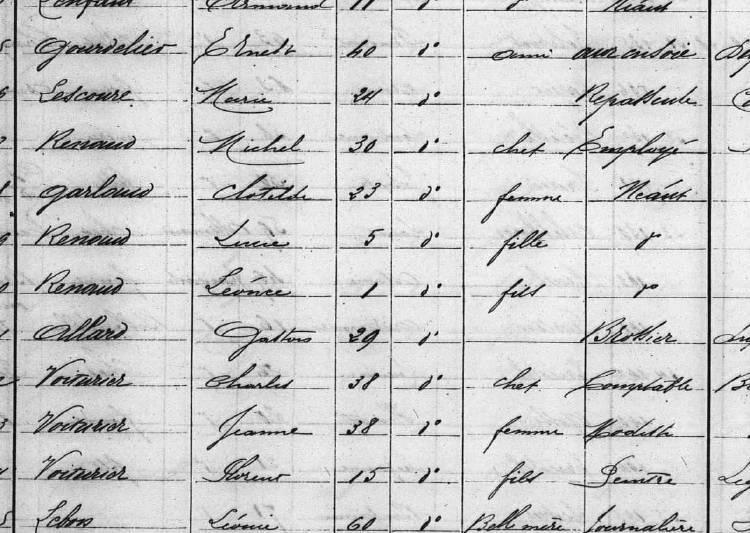 Armand 11 d° d° Néant
Gourdelier Ernest 40 d° ami
Lescoure Marie 24 d° Repasseuse
Renaud Michel 30 d° chef Employé
Garlaud Clotilde 23 d° femme Néant
Renaud Lucie 5 d° fille d°
Renaud Léonce 1 d° fils d°
Allard Gaston 29 d° Brossier
Voiturier Charles 38 d° chef Comptable
Voiturier Jeanne 38 d° femme Modiste
Voiturier Florent 15 d° fils Peintre
Lebon Léonie 60 d° Belle mère Journalière